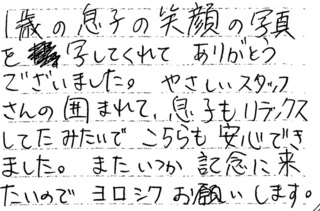 1歳の息子の笑顔の写真
を写してくれて ありがとう
ございました。 やさしいスタッフ
さんの囲まれて、息子もリラックス
してたみたいで こちらも 安心でき
ました。 またいつか 記念に来
たいので ヨロシク お願いします。